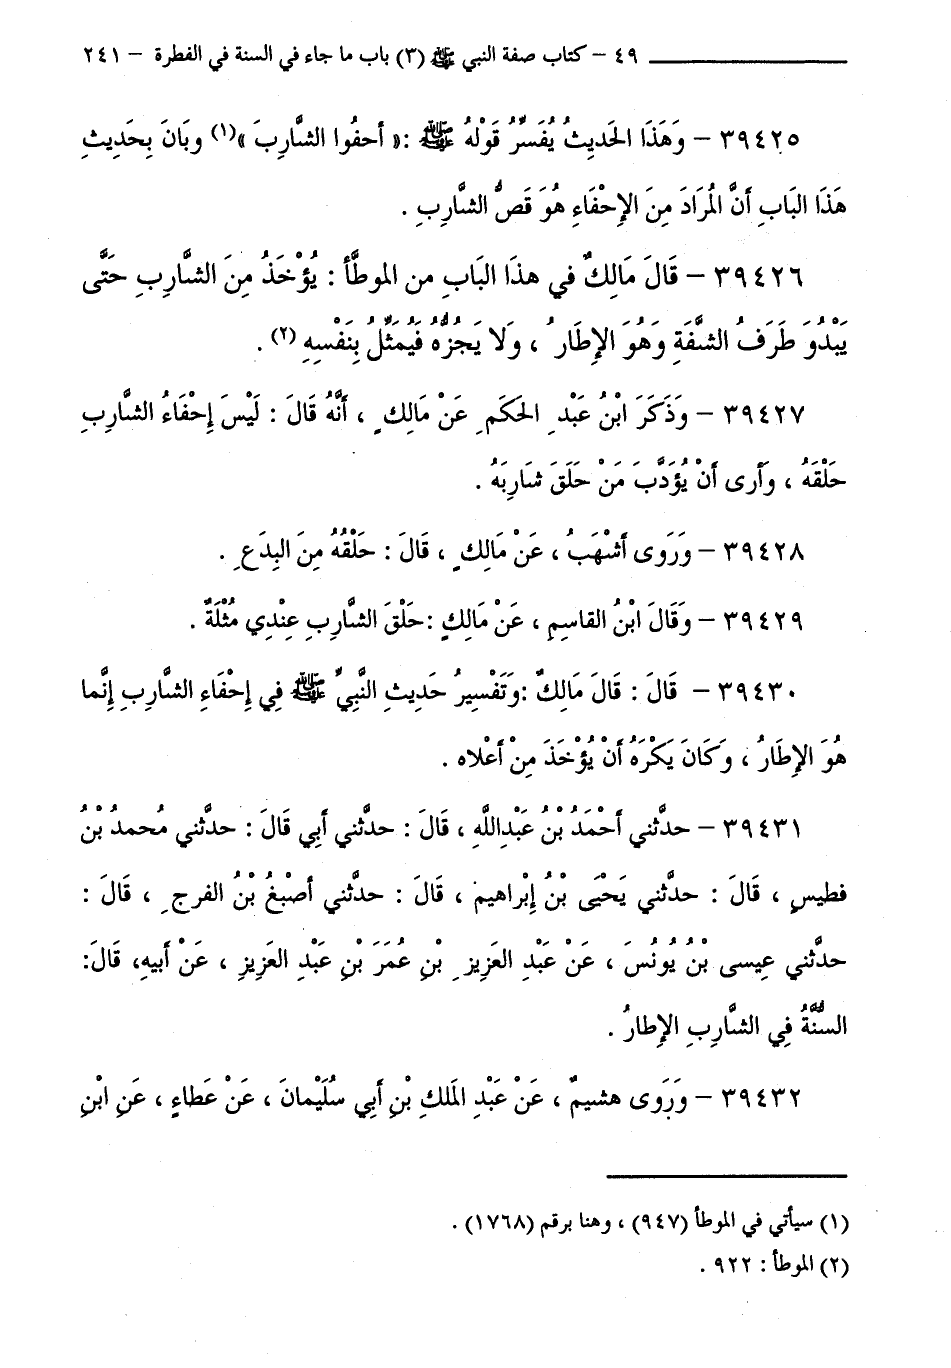 ٤٩ – كتاب صفة النبي ﷺ (٣) باب ما جاء في السنة في الفطرة – ٢٤١
٣٩٤٢٥ – وَهَذَا الحَديثُ يُفَسِّرُ قَوْلَهُ ﷺ :« أحفُوا الشَّارِبَ »(١) وبَانَ بِحَديثِ
هَذَا البَابِ أَنَّ المُرَادَ مِنَ الإِحْفَاءِ هُوَ قَصُّ الشَّارِبِ .
٣٩٤٢٦ – قَالَ مَالِكٌ في هذَا البَاب من الموطَّأ : يُؤْخَذُ مِنَ الشَّارِبِ حَتَّى
يَبْدُوَ طَرَفُ الشَّفَةِ وَهُوَ الإِطَارُ ، وَلا يَجُزُّهُ فَيُمَثِّلُ بِنَفْسِهِ (٢) .
٣٩٤٢٧ – وَذَكَرَ ابْنُ عَبْدِ الحَكَمِ عَنْ مَالِكٍ ، أَنَّهُ قَالَ : لَيْسَ إِحْفَاءُ الشَّارِبِ
حَلْقَهُ ، وَأَرى أَنْ يُؤَدَّبَ مَنْ حَلَقَ شَارِبَهُ .
٣٩٤٢٨ – وَرَوَى أَشْهَبُ ، عَنْ مَالِكٍ ، قَالَ : حَلْقُهُ مِنَ البِدَعِ .
٣٩٤٢٩ – وَقَالَ ابْنُ القَاسِمِ ، عَنْ مَالِكٍ :حَلْقَ الشَّارِبِ عِنْدِي مُثْلَةٌ .
٣٩٤٣٠ – قَالَ : قَالَ مَالِكٌ :وَتَفْسِيرُ حَدِيثِ النَّبِيِّ ﷺ فِي إِحْفَاءِ الشَّارِبِ إِنَّما
هُوَ الإِطَارُ ، وَكَانَ يَكْرَهُ أَنْ يُؤْخَذَ مِنْ أَعْلاه .
٣٩٤٣١ – حدَّثني أَحْمَدُ بْنُ عَبْدِاللَّهِ ، قَالَ : حدَّثني أَبِي قَالَ : حدَّثني مُحمدُ بْنُ
فطيسٍ ، قَالَ : حدَّثني يَحْيَى بْنُ إِبْراهيمَ ، قَالَ : حدَّثني أَصْبَغُ بْنُ الفرجِ ، قَالَ :
حدَّثني عِيسى بْنُ يُونُسَ ، عَنْ عَبْدِ العَزِيزِ بْنِ عُمَرَ بْنِ عَبْدِ العَزِيزِ ، عَنْ أَبيهِ، قَالَ:
السُّنَّةُ فِي الشَّارِبِ الإِطارُ .
٣٩٤٣٢ – وَرَوَى هشيمٌ ، عَنْ عَبْدِ المَلكِ بْنِ أَبِي سُلَيْمانَ ، عَنْ عَطَاءٍ ، عَنِ ابْنِ
(١) سيأتي في الموطأ (٩٤٧) ، وهنا برقم (١٧٦٨) .
(٢) الموطأ : ٩٢٢ .